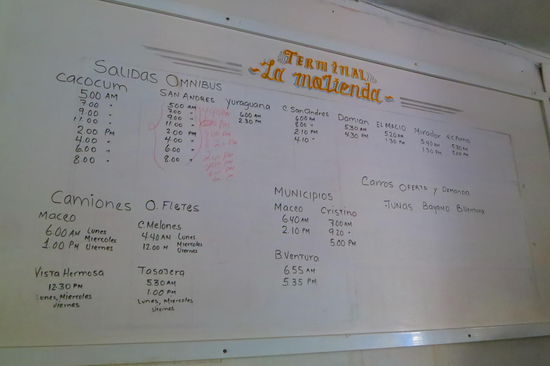 TERMINAL
La moLienda
SALIDAS OMNIBUS
CACOCUM
5.00 AM
7.00 "
9.00 "
11.00 "
2.00 PM
4.00 "
6.00 "
8.00 "
SAN ANDRES
5.00 AM
7.00 "
9.00 "
11.00 "
2.00 PM
4.00 "
6.00 "
8.00 "
Yuraguana
6.00 AM
2.30 PM
C. San Andres
6.00 AM
8.00 "
2.10 PM
4.10 "
Damian
5.30 AM
4.30 PM
EL MACIO
5.20 AM
1.30 PM
Mirador
5.40 AM
1.30 PM
5.30 AM
CARROS OFERTA y DEMANDA
TUNAS BAYAMO B.VENTURA
CAMIONES O. FLETES
MACEO
6.00 AM Lunes
Miercoles
1.00 PM Viernes
C.Melones
4.40 AM Lunes
Miercoles
12.00 M Viernes
VISTA HERMOSA
12.30 PM
Lunes, Miercoles
Viernes
TASAJERA
5.30 AM
1.00 PM
Lunes, Miercoles
Viernes
MUNICIPIOS
MACEO
6.40 AM
2.10 PM
CRISTINO
7.00 AM
9.20 "
5.00 PM
B.VENTURA
6.55 AM
5.35 PM